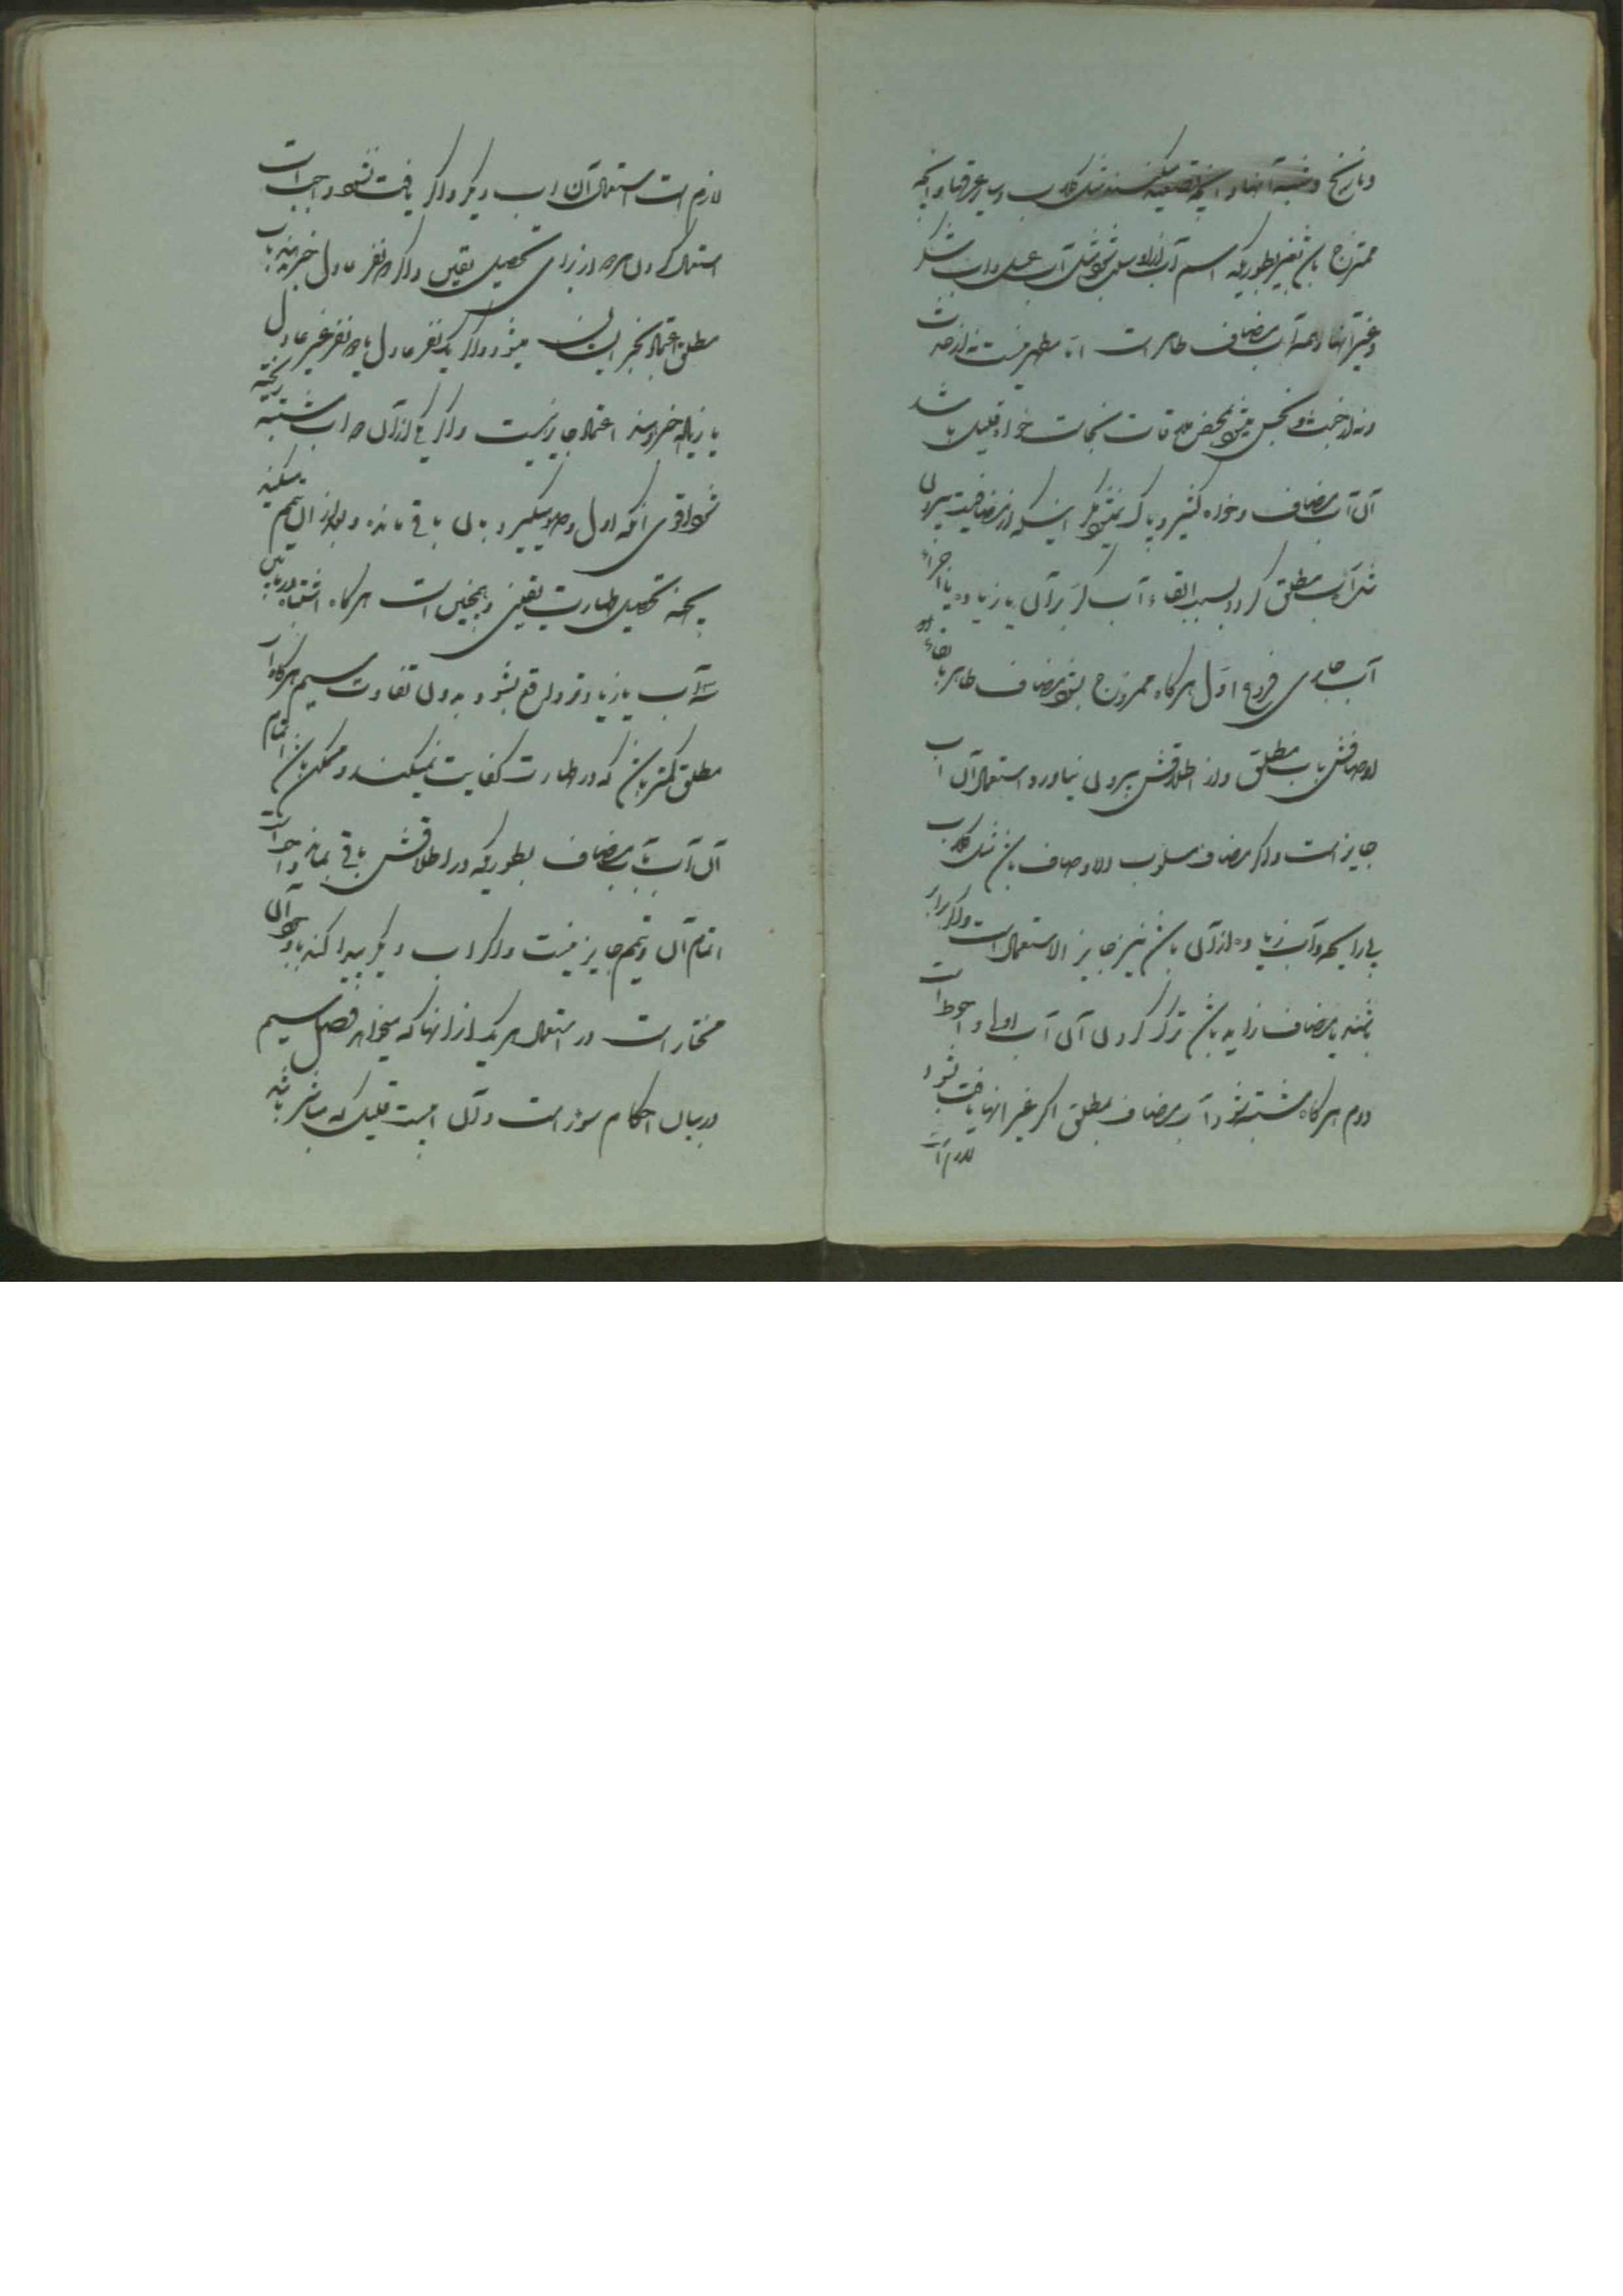 و نارنج و شبه آنها و آنچه تصعید میکنند مثل گلاب و سایر عرقها و آنچه
ممتزج باشد بغیر بطوریکه اسم آب از او سلب شود مثل آب عسل و آب شکر
و غیر آنها و همه آب مضاف طاهر است اما مطهر نیست نه از حدث
و نه از خبث و نجس میشود بمحض ملاقات نجاست خواه قلیل باشد
آن آب مضاف و خواه کثیر و پاک نمیشود مگر اینکه از مضافیت بیرون
مثل آب مطلق گردد بسبب القاء آب کر بر آن یا زیاده یا اجراء
آب جاری فروع اول هرگاه ممزوج بشود مضاف طاهر با بقاء
اوصافش بآب مطلق و از اطلاقش بیرون نیاورد استعمال آن آب
جایز است و اگر مضاف مسلوب الاوصاف باشد مثل گلاب
بی رایحه و آب زیاده از آن باشد نیز جایز الاستعمال است و اگر برابر
باشند یا مضاف زاید باشد ترک کردن آن آب اولی و احوط است
دوم هرگاه مشتبه شود آب مضاف بمطلق اگر غیر آنها یافت شود
لازم است
لازم است استعمال آن آب دیگر و اگر یافت نشود واجب است
استعمال کردن هر دو از برای تحصیل یقین و اگر دو نفر عادل خبر دهند بآب
مطلق اعتماد بخبر ایشان میشود و اگر یک نفر عادل یا دو نفر غیر عادل
یا زیاده خبر دهند اعتماد جایز نیست و اگر یکی از آن دو آب مشتبه ریخته
شود اقوی آنکه اول وضو میگیرد بآن باقی مانده و بعد از آن تیمم میکند
بجهة تحصیل طهارت یقینی و همچنین است هرگاه اشتباه در مابین
سه آب یا زیادتر واقع بشود بدون تفاوت سیم هرگاه آب
مطلق کمتر باشد که در طهارت کفایت نمیکند و ممکن باشد اتمام
آن آب بآب مضاف بطوریکه در اطلاقش باقی بماند واجب است
اتمام آن و تیمم جایز نیست و اگر آب دیگر پیدا کند با وجود آن
مختار است در استعمال هر یک از آنها که میخواهد فصل سیم
در بیان احکام سؤر است و آن آبیست قلیل که مباشر باشد